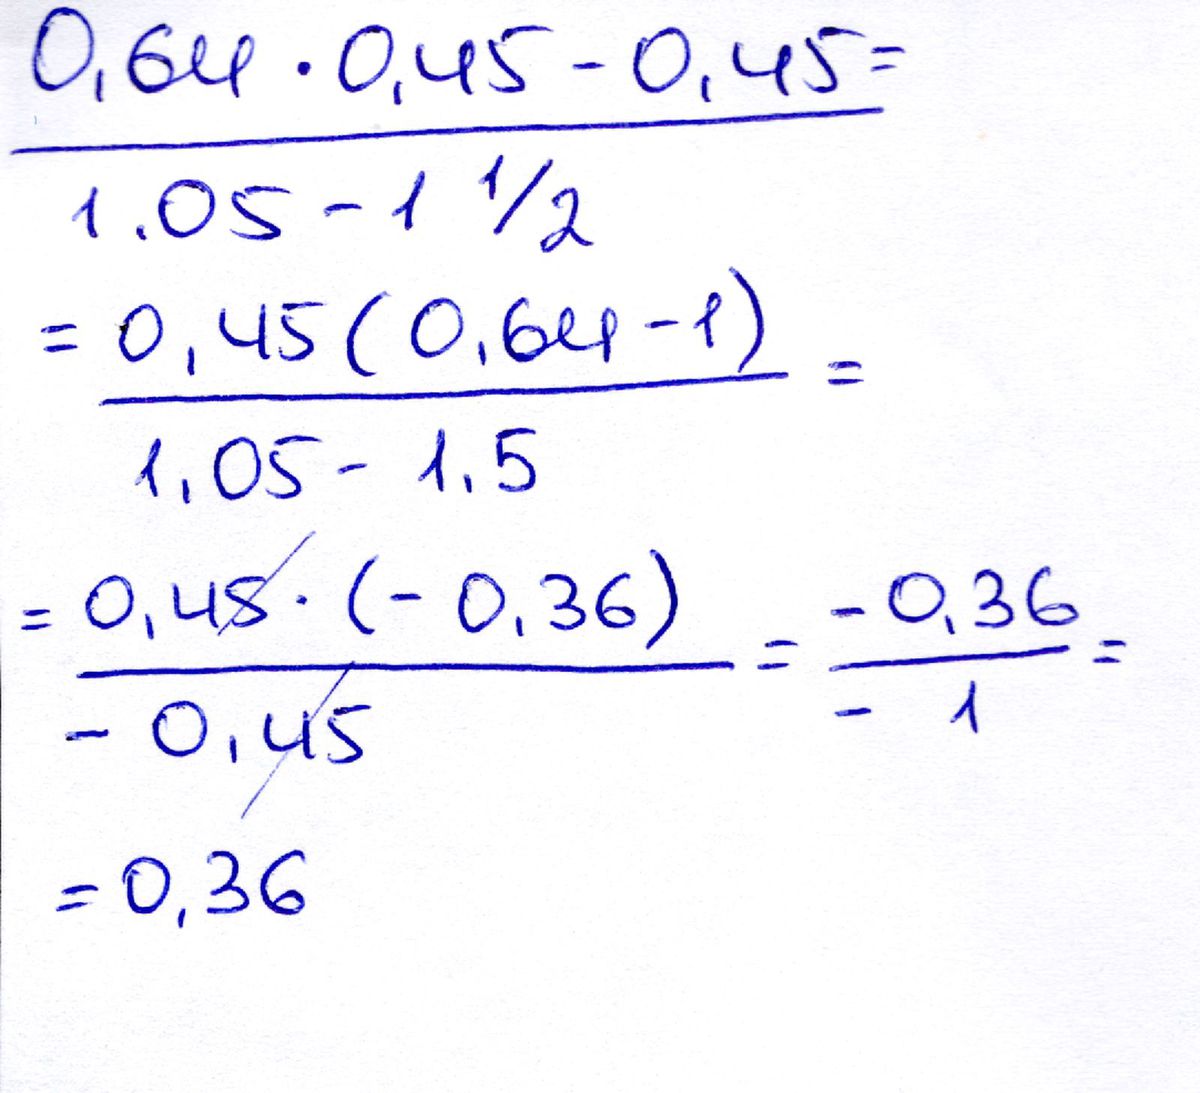 0,64 · 0,45 - 0,45 =
1.05 - 1 1/2
= 0,45 ( 0,64 - 1 ) =
1,05 - 1.5
= 0,45 · (- 0,36) = - 0,36 =
- 0,45 - 1
= 0,36